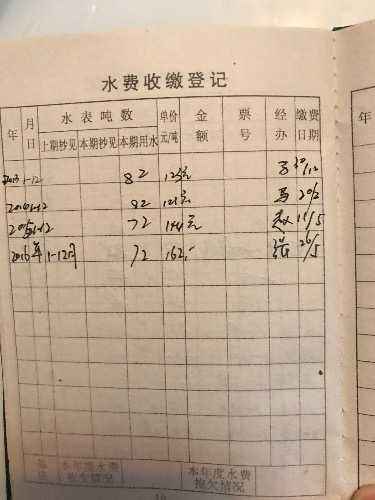 水费收缴登记
年 月日 水表吨数 单价元/吨 金额 票号 经办 缴费日期 年
上期抄见 本期抄见 本期用水
2013 1-12 82 123元 马 30/12
82 123元 马 20/2
72 144元 赵 11/5
2016年 1-12月 72 162.- 张 26/5
备注 本年度水费拖欠情况 本年度水费拖欠情况